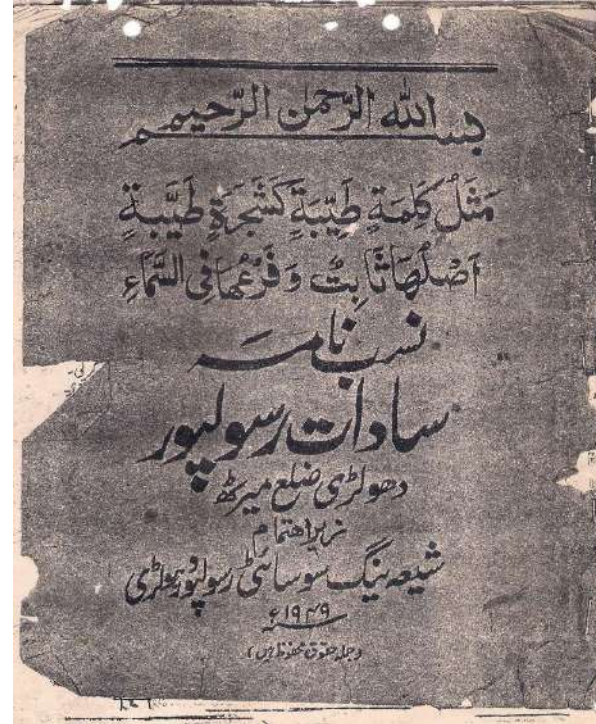 بسم الله الرّحمٰن الرّحیم
مَثَلُ کَلِمَةٍ طَیِّبَةٍ کَشَجَرَةٍ طَیِّبَةٍ
اَصْلُهَا ثَابِتٌ وَ فَرْعُهَا فِی السَّمَاءِ
نسب نامہ
سادات رسولپور
دھولڑی ضلع میرٹھ
زیر اہتمام
شیعہ ینگ سوسائٹی رسولپور دھولڑی
۱۹۴۹ء
(جملہ حقوق محفوظ ہیں)